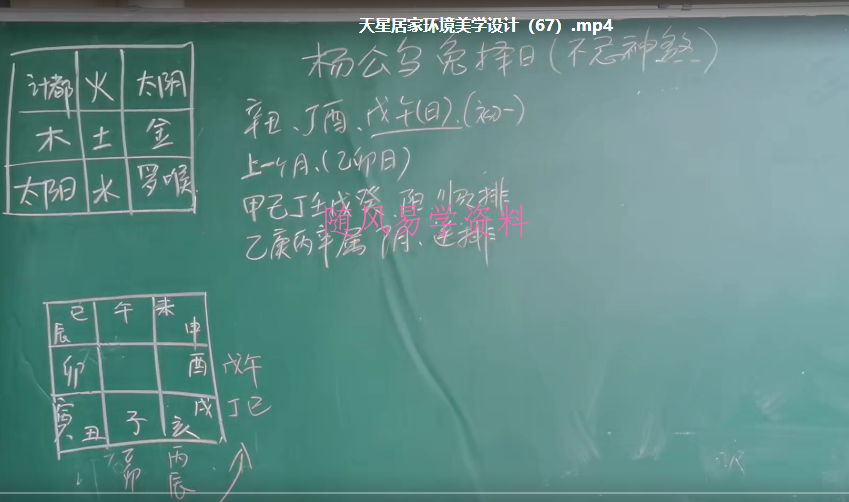 天星居家环境美学设计（67）.mp4
杨公乌兔择日(不忌神煞)
计都 火 太阴
木 土 金
太阳 水 罗喉
辛丑、丁酉、戊午(日)、(初一)
上一个月、(乙卯日)
甲己丁壬戊癸、阳、顺排
乙庚丙辛属阴、逆排
随风易学资料
巳 午 未
辰 申
卯 酉 戊午
寅 丑 子 亥 戌 丁巳
乙卯 丙辰